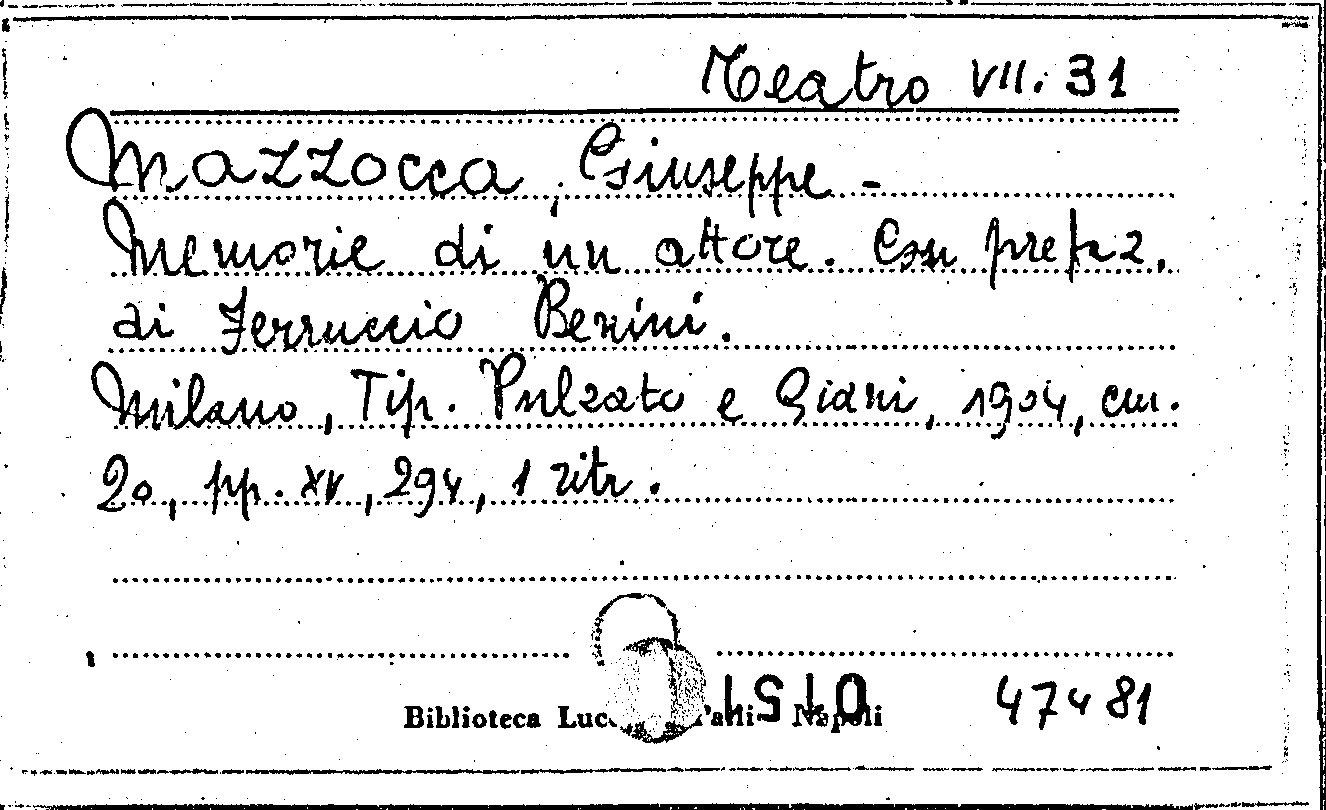 Teatro VII. 31
Mazzocca, Giuseppe -
Memorie di un attore. Con prefaz.
di Ferruccio Benini.
Milano, Tip. Pulzato e Giani, 1904, cm.
20, pp. XV, 294, 1 ritr.
Biblioteca Napoli
47481